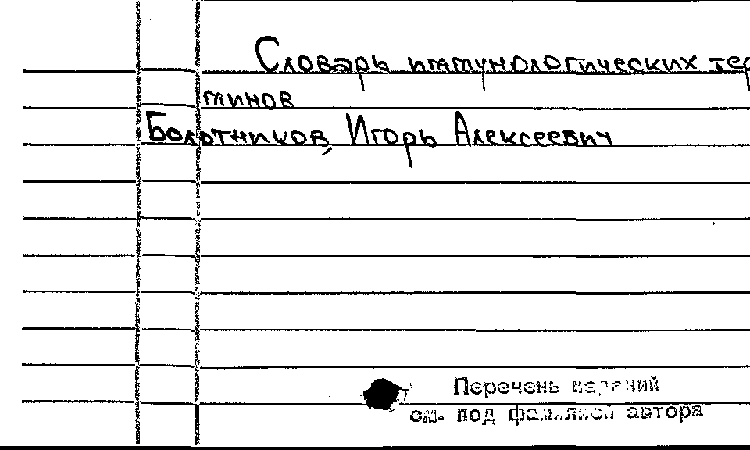 Словарь иммунологических тер
минов
Болотников, Игорь Алексеевич
Перечень изданий
см. под фамилией автора